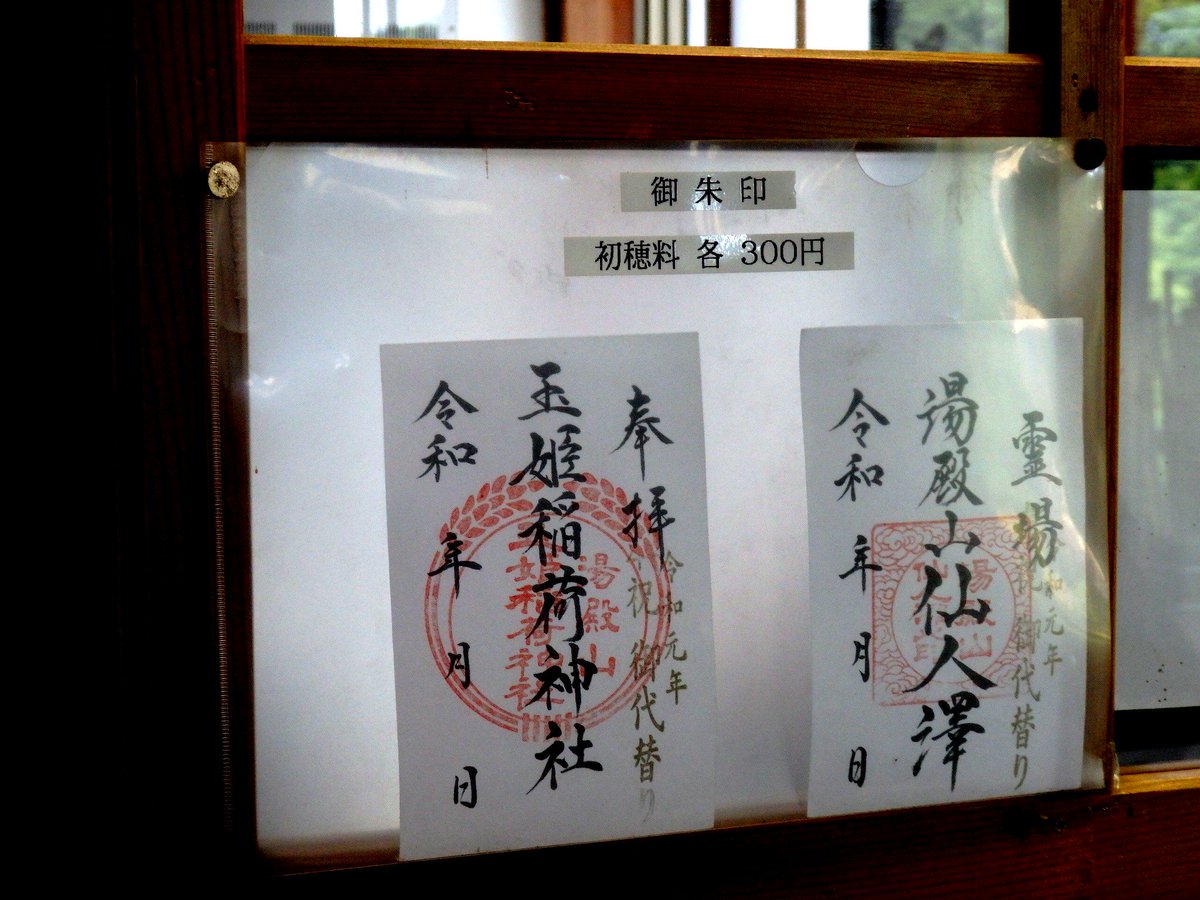 御朱印
初穂料 各 300円
霊場
祝 御代替り
令和元年
湯殿山仙人澤
令和 年 月 日
奉拝
祝 御代替り
令和元年
玉姫稲荷神社
湯殿山
玉姫稲荷神社
令和 年 月 日